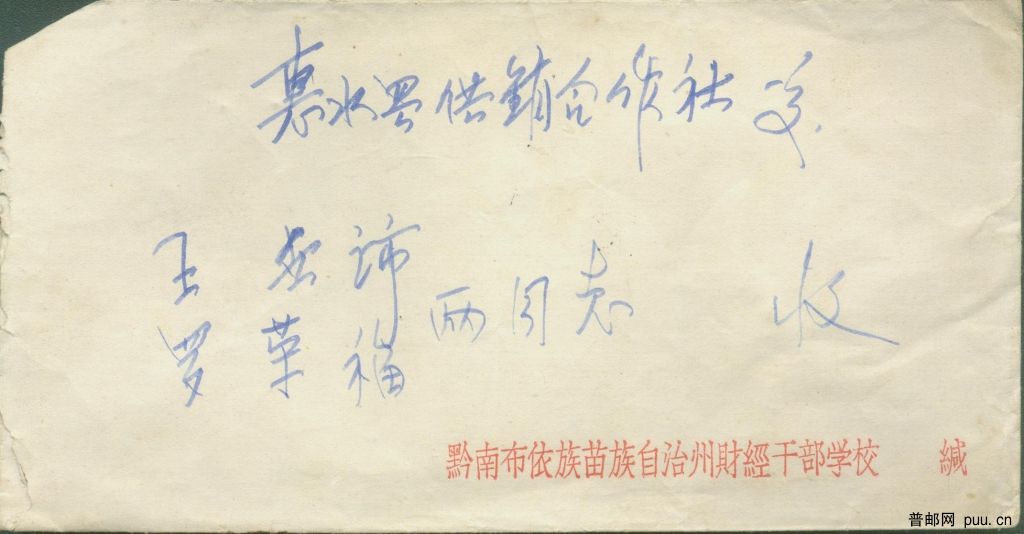 惠水县供销合作社 交
王 岳 沛
罗 荣 福
两同志 收
黔南布依族苗族自治州財經干部学校 緘
普邮网 puu.cn